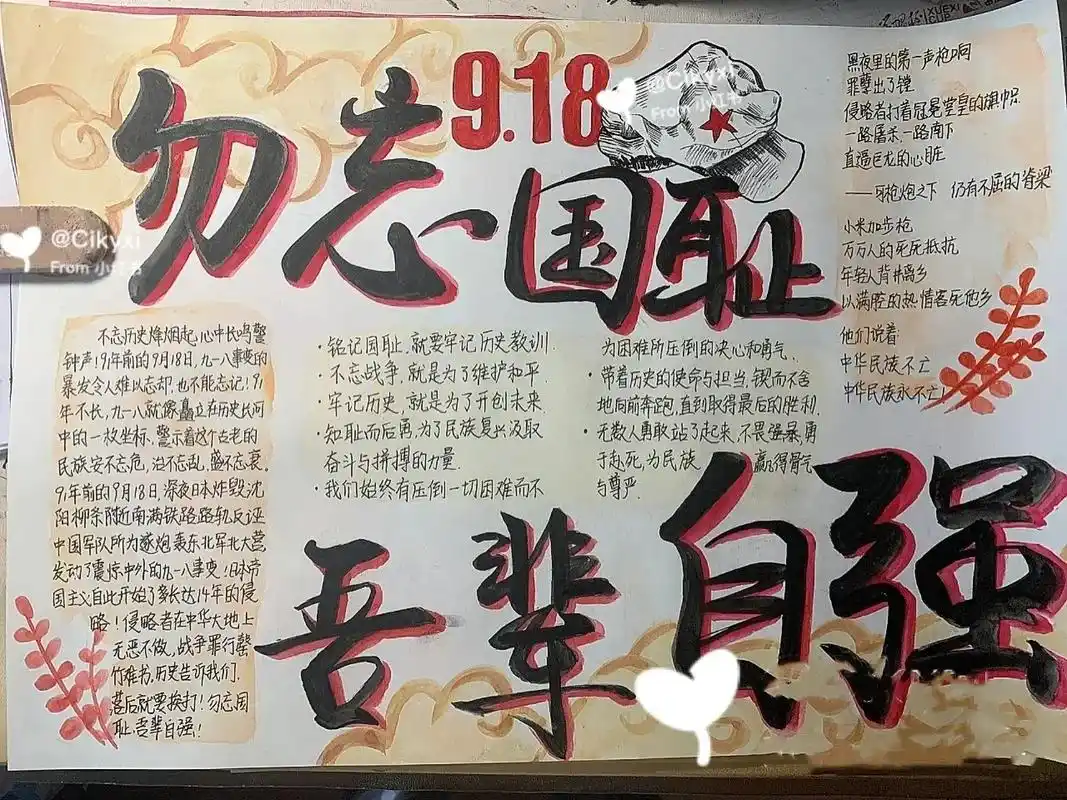 9.18
勿忘国耻
不忘历史烽烟起,心中长鸣警
钟声!91年前的9月18日,九一八事变的
暴发令人难以忘却,也不能忘记!91
年不长,九一八就像矗立在历史长河
中的一枚坐标、警示着这个古老的
民族安不忘危,治不忘乱,盛不忘衰.
91年前的9月18日,深夜日本炸毁沈
阳柳条附近南满铁路路轨,反诬
中国军队所为遂炮轰东北军北大营,
发动了震惊中外的九一八事变!日本帝
国主义自此开始了多长达14年的侵
略!侵略者在中华大地上
无恶不做,战争罪行罄
竹难书,历史告诉我们,
落后就要挨打!勿忘国
耻,吾辈自强!
·铭记国耻,就要牢记历史教训.
·不忘战争,就是为了维护和平.
·牢记历史,就是为了开创未来.
·知耻而后勇,为了民族复兴汲取
奋斗与拼搏的力量.
·我们始终有压倒一切困难而不
为困难所压倒的决心和勇气.
·带着历史的使命与担当,锲而不舍
地向前奔跑,直到取得最后的胜利.
·无数人勇敢站了起来,不畏强暴,勇
于赴死,为民族 赢得骨气
与尊严.
黑夜里的第一声枪响
罪孽出了镗
侵略者打着冠冕堂皇的旗帜
一路屠杀,一路南下
直逼巨龙的心脏
——可枪炮之下 仍有不屈的脊梁
小米加步枪
万万人的死死抵抗
年轻人背井离乡
以满腔的热情客死他乡
他们说着:
中华民族不亡
中华民族永不亡!
吾辈自强
@Cikyxi
From 小红书
@Cikyxi
From 小红书